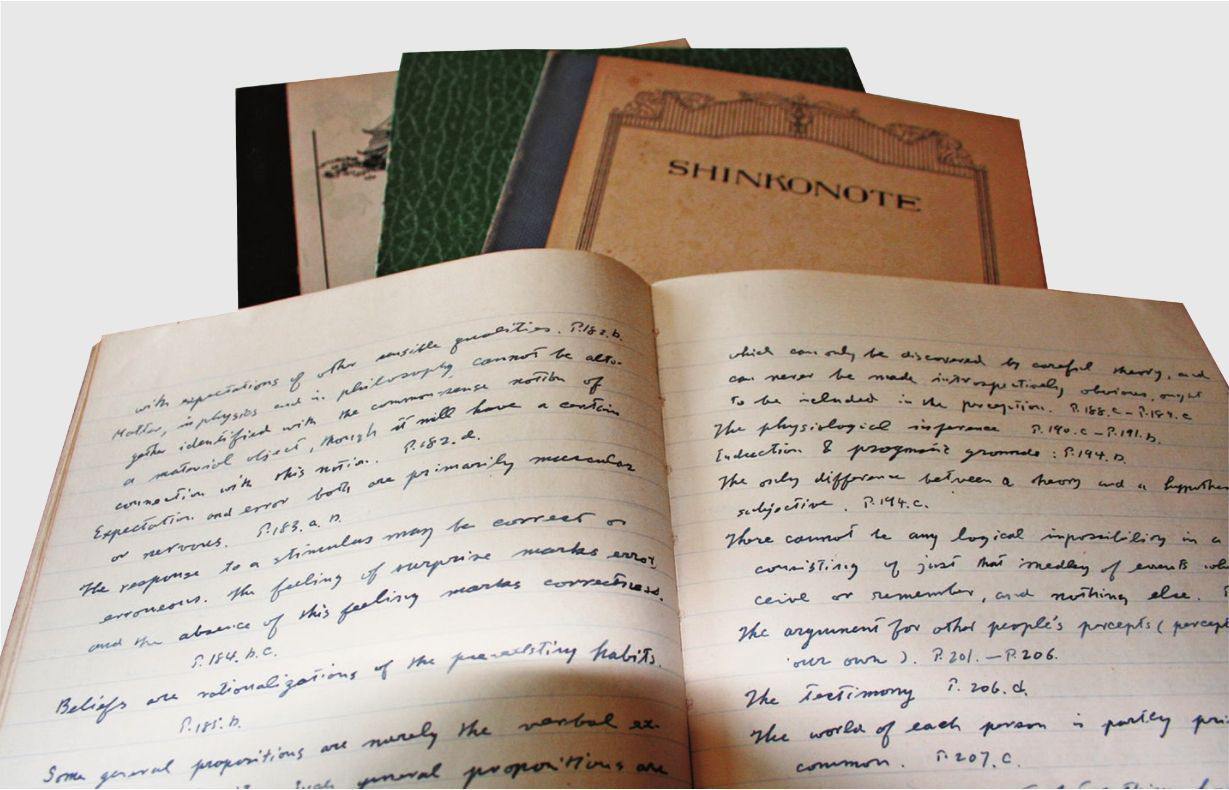 SHINKONOTE
with expectations of other sensible qualities. P.182.b.
Matter, in physics and in philosophy, cannot be alto-
gether identified with the common-sense notion of
a material object, though it will have a certain
connection with this notion. P.182.d.
Expectation and error both are primarily muscular
or nervous. P.183.a.b.
The response to a stimulus may be correct or
erroneous. The feeling of surprise marks error,
and the absence of this feeling marks correctness.
P.184.b.c.
Beliefs are rationalizations of the pre-existing habits.
P.185.b.
Some general propositions are merely the verbal ex-
such general propositions are
which can only be discovered by careful theory, and
can never be made introspectively obvious, ought
to be included in the perception. P.188.c–P.189.c
The physiological inference P.190.c–P.191.b.
Induction & pragmatic grounds: P.194.b.
The only difference between a theory and a hypothe
subjective. P.194.c.
There cannot be any logical impossibility in a
consisting of just that medley of events
ceive or remember, and nothing else.
The argument for other people's percepts (percep
our own). P.201.–P.206.
The testimony P.206.d.
The world of each person is partly pri
common. P.207.c.